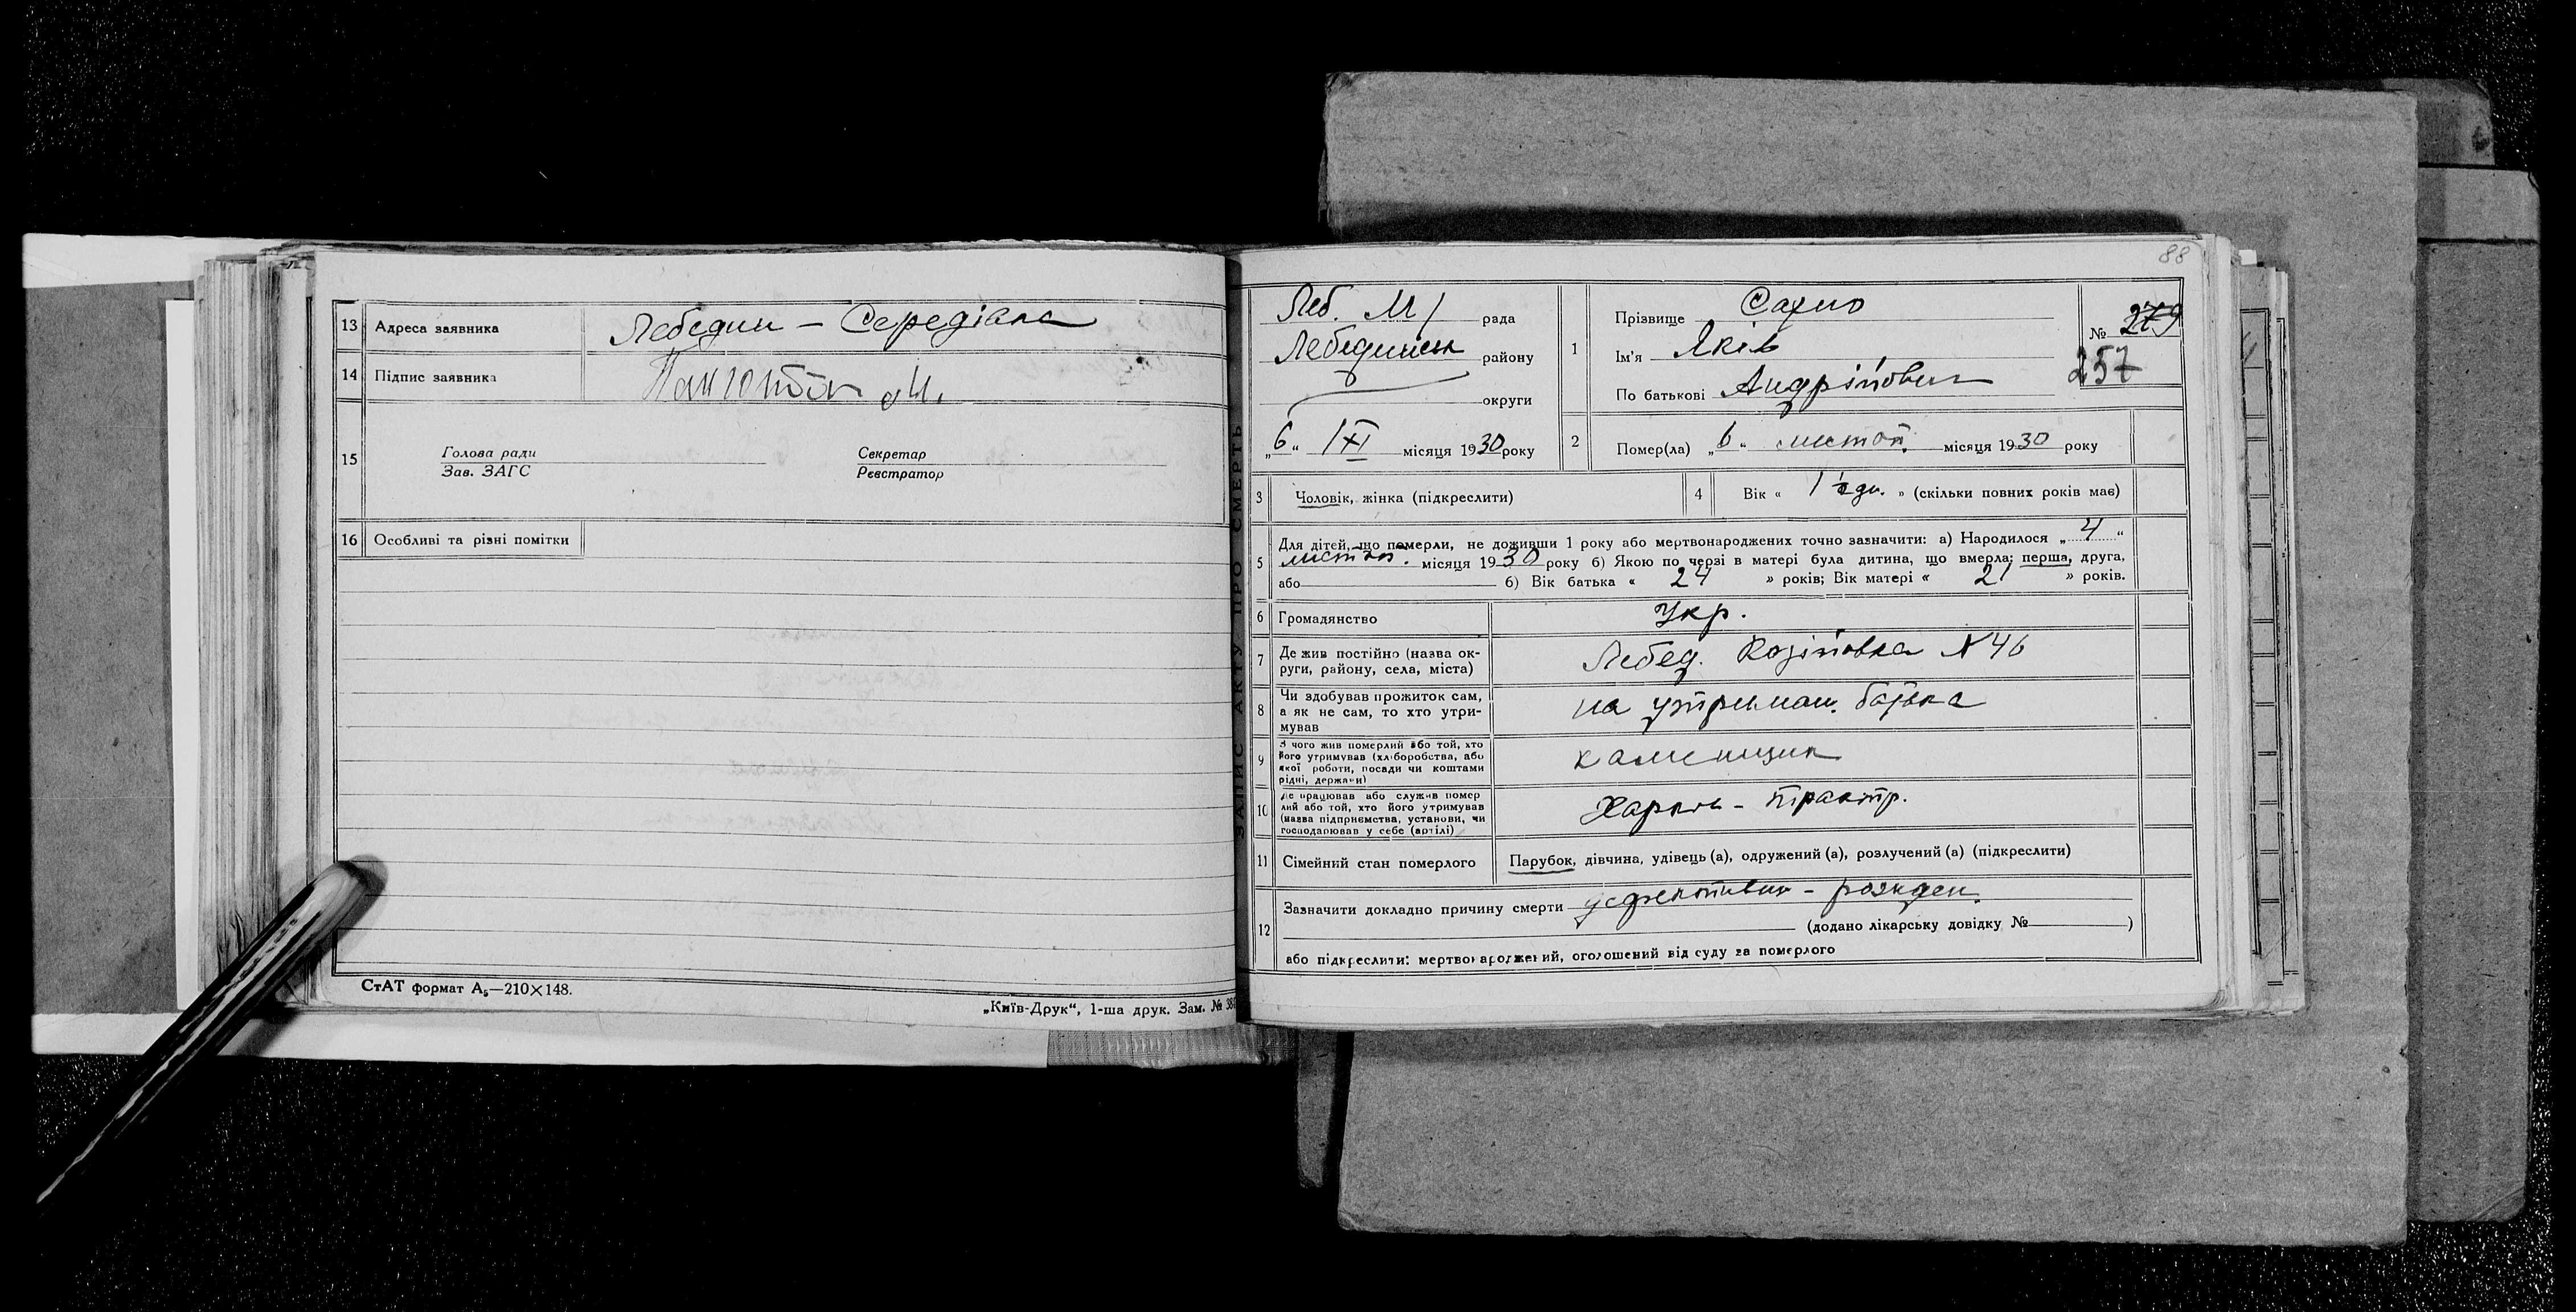 13 Адреса заявника Лебедин — Середівка
14 Підпис заявника
15 Голова ради
Зав. ЗАГС
Секретар
Реєстратор
16 Особливі та різні помітки
СтАТ формат А5—210×148.
„Київ-Друк“, 1-ша друк. Зам. № 38
ЗАПИС АКТУ ПРО СМЕРТЬ
88
Леб. М/ рада
Лебединськ району
округи
„6“ /XI місяця 1930 року
1 Прізвище Сахно
Ім'я Яків
По батькові Андрійович
№ 279
257
2 Помер(ла) „6“ листоп. місяця 1930 року
3 Чоловік, жінка (підкреслити)
4 Вік « 1½ дн. » (скільки повних років має)
5 Для дітей, що померли, не доживши 1 року або мертвонароджених точно зазначити: а) Народилося „4“
листоп. місяця 1930 року б) Якою по черзі в матері була дитина, що вмерла: перша, друга,
або б) Вік батька « 24 » років; Вік матері « 21 » років.
6 Громадянство Укр.
7 Де жив постійно (назва округи, району, села, міста) Лебед. Козіївка № 46
8 Чи здобував прожиток сам,
а як не сам, то хто утримував
на утриман. батька
9 З чого жив померлий або той, хто
його утримував (хліборобства, або
якої роботи, посади чи коштами
рідні, держави)
каменщик
10 Де працював або служив померлий або той, хто його утримував
(назва підприємства, установи, чи
господарював у себе (артілі)
Харків - трактр.
11 Сімейний стан померлого Парубок, дівчина, удівець (а), одружений (а), розлучений (а) (підкреслити)
12 Зазначити докладно причину смерти
(додано лікарську довідку № )
або підкреслити: мертвонароджений, оголошений від суду за померлого